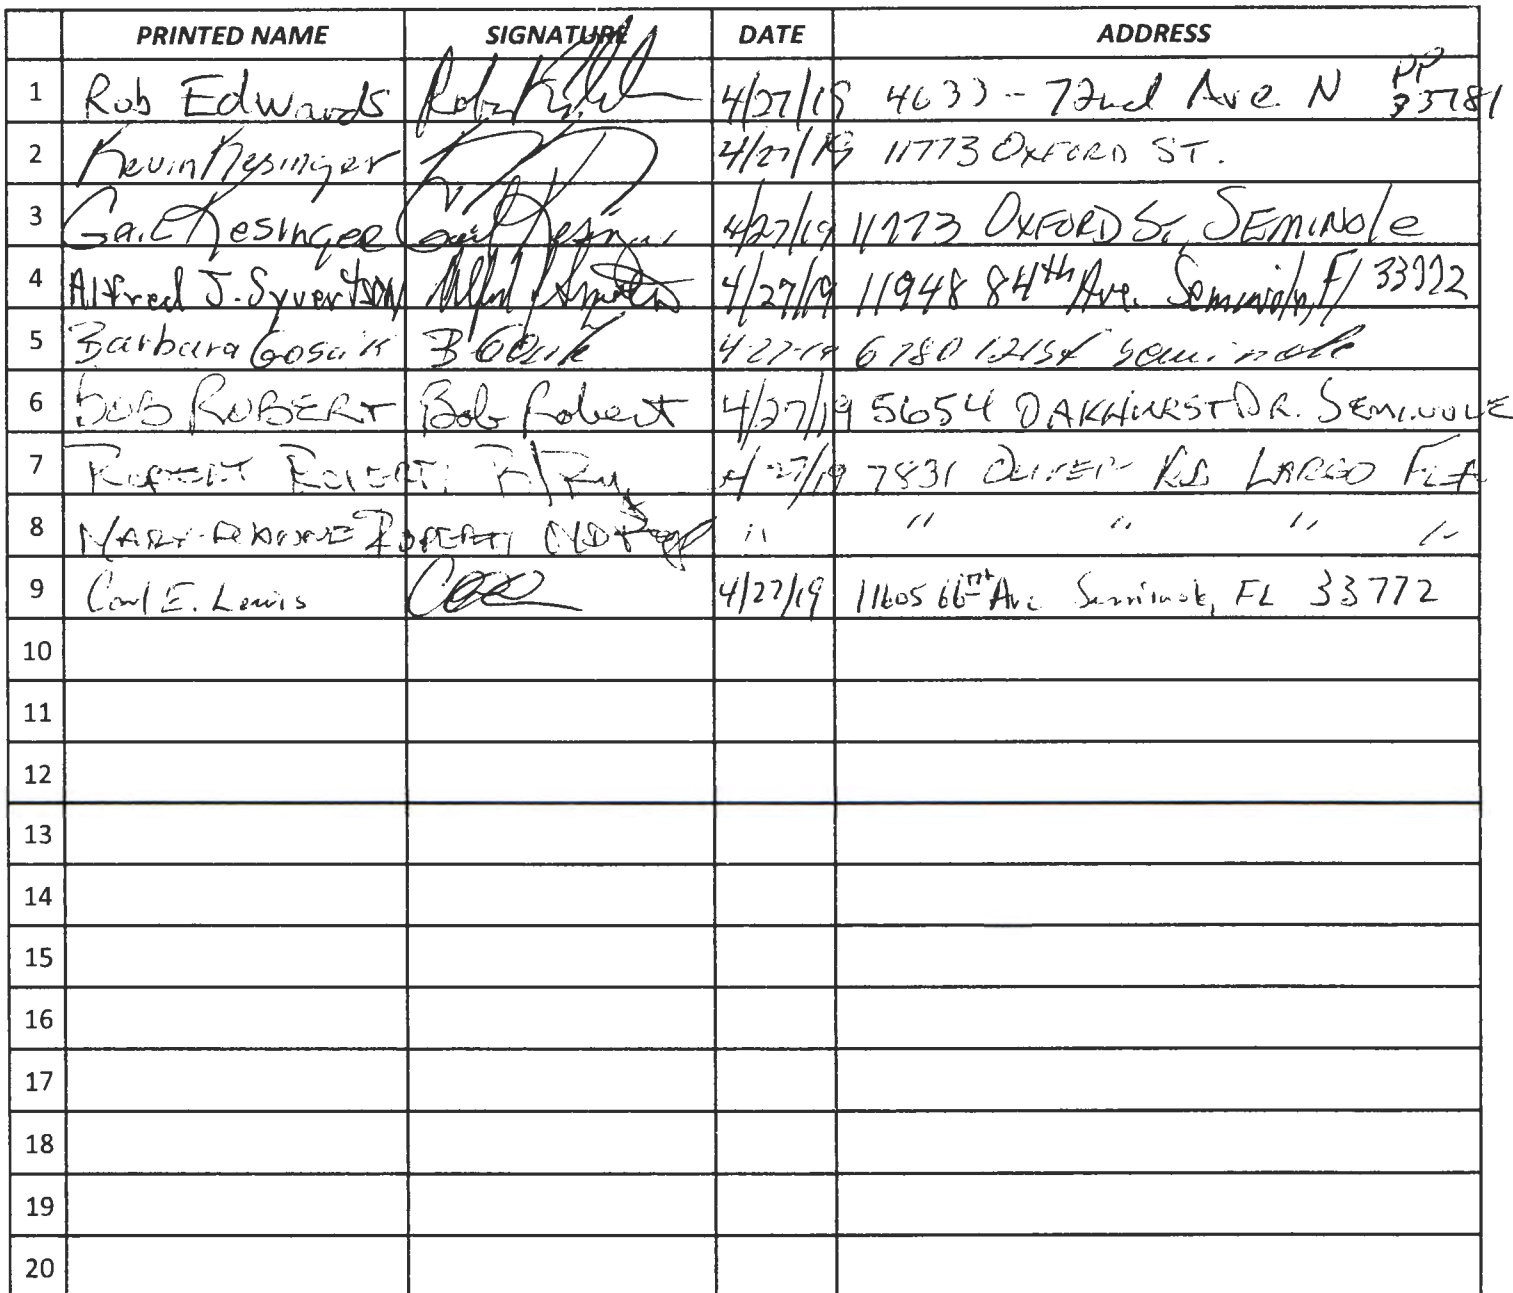 PRINTED NAME SIGNATURE DATE ADDRESS
1 Rob Edwards 4/27/19 4633 - 72nd Ave. N PP 33781
2 Kevin Kesinger 4/27/19 11773 OXFORD ST.
3 Gail Kesinger Gail Kesinger 4/27/19 11773 OXFORD St, SEMINOLE
4 Alfred J. Syvertson 4/27/19 11948 84th Ave. Seminole, Fl 33772
5 Barbara 4-27-19 6780 121st Seminole
6 BOB ROBERT Bob Robert 4/27/19 5654 OAKHURST DR. SEMINOLE
7 ROBERT 4/27/19 7831 RD LARGO FLA
8 MARY " " " " "
9 Carl E. Lewis 4/27/19 11605 66th Ave Seminole, FL 33772
10
11
12
13
14
15
16
17
18
19
20